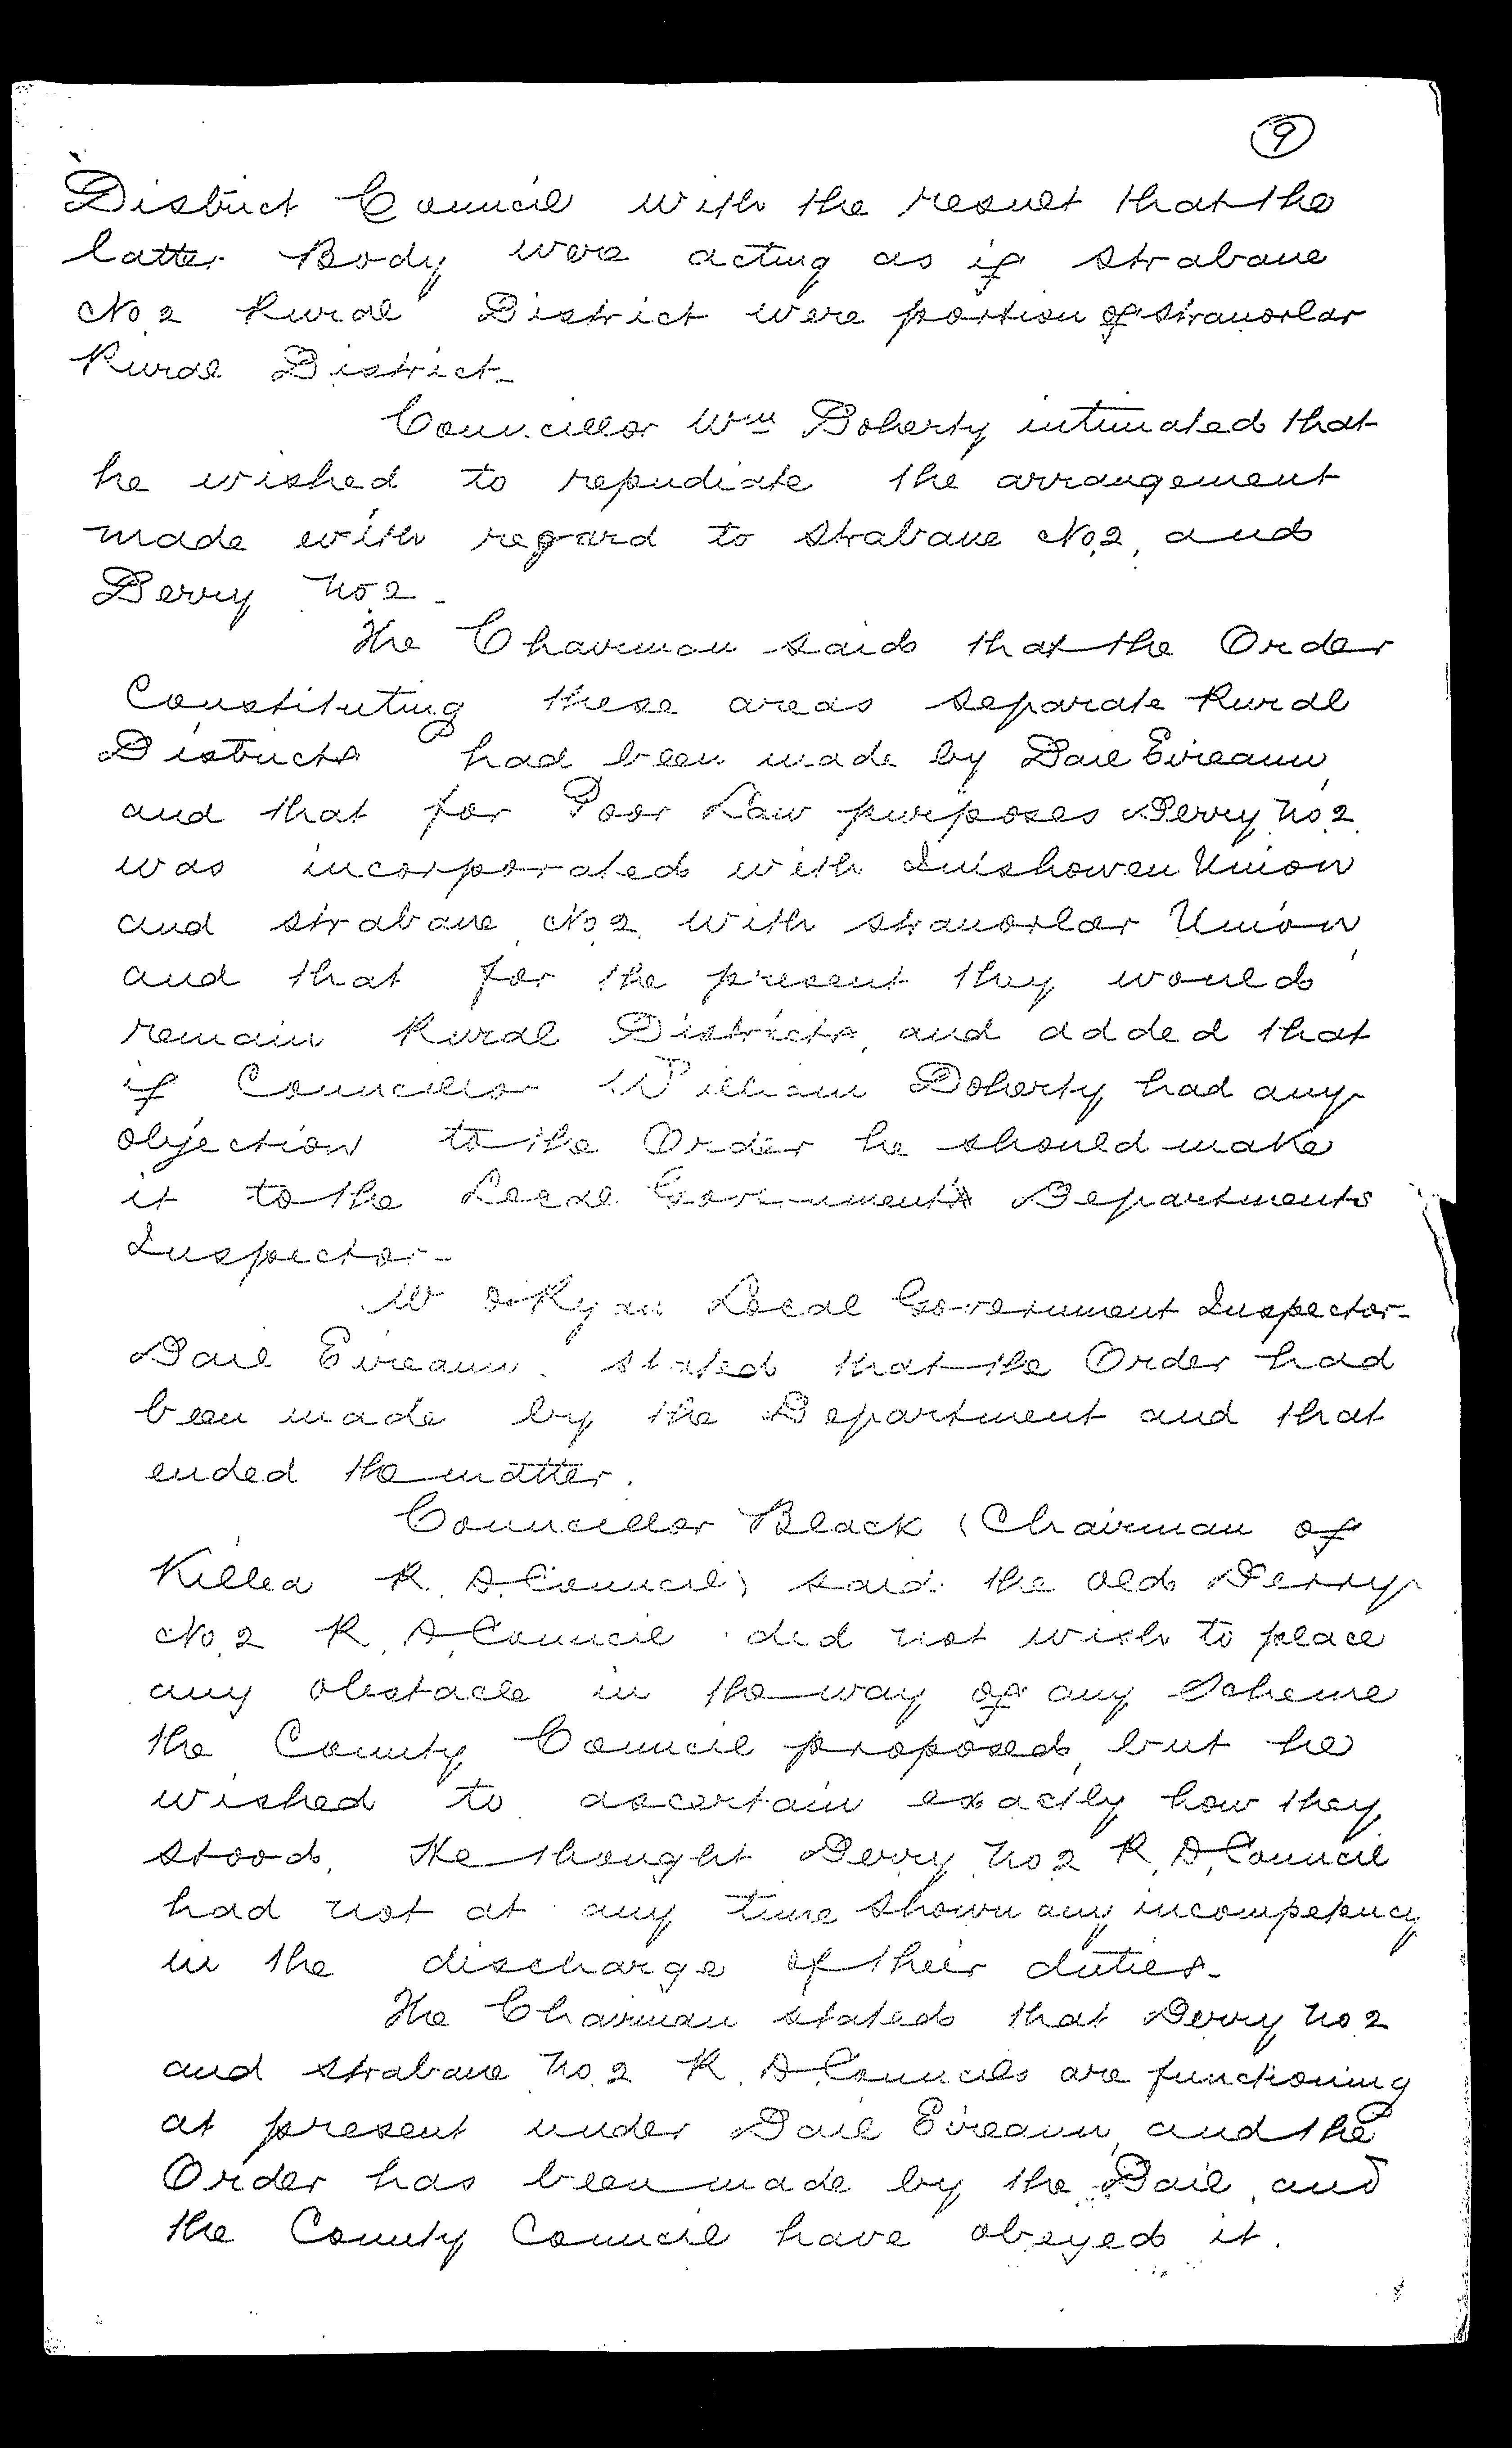 9
District Council with the result that the
latter Body were acting as if Strabane
No 2 Rural District were portion of Stranorlar
Rural District.
Councillor Wm Doherty intimated that
he wished to repudiate the arrangement
made with regard to Strabane No. 2, and
Derry No 2.
The Chairman said that the Order
Constituting these areas separate Rural
Districts had been made by Dail Eireann,
and that for Poor Law purposes Derry No 2
was incorporated with Inishowen Union
and Strabane No 2 with Stranorlar Union,
and that for the present they would
remain Rural Districts, and added that
if Councillor William Doherty had any
objection to the Order he should make
it to the Local Government Departments
Inspector.
Local Government Inspector
Dail Eireann. stated that the Order had
been made by the Department and that
ended the matter.
Councillor Black (Chairman of
Killea R. D. Council) said the old Derry
No. 2 R. D. Council did not wish to place
any obstacle in the way of any Scheme
the County Council proposed, but he
wished to ascertain exactly how they
stood. He thought Derry No 2 R. D. Council
had not at any time shown any incompetency
in the discharge of their duties.
The Chairman stated that Derry No 2
and Strabane No. 2 R. D. Councils are functioning
at present under Dail Eireann, and the
Order has been made by the Dail, and
the County Council have obeyed it.